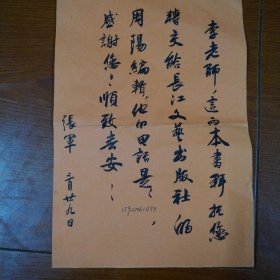 李老師，這兩本書拜托您
轉交給長江文藝出版社的
周陽編輯，他的电話是：
感謝您！順致春安！
張軍
二月廿九日